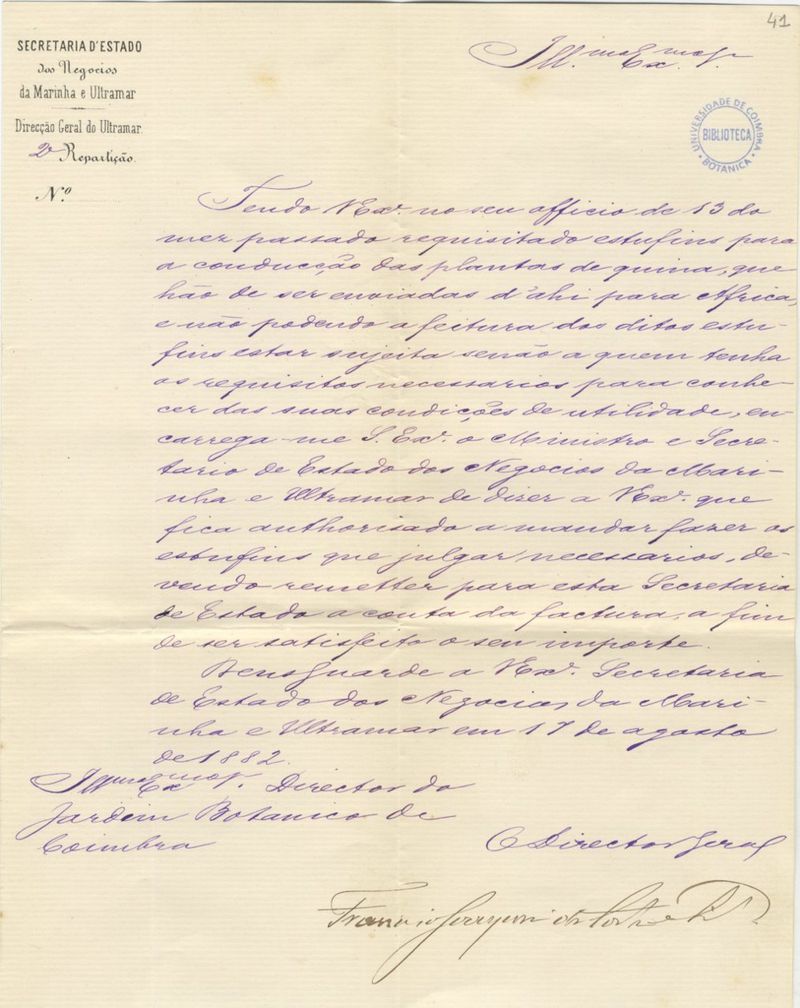 41
SECRETARIA D'ESTADO
dos Negocios
da Marinha e Ultramar
Direcção Geral do Ultramar
2ª Repartição
N.º
Ill.mo Ex.mo Sr.
UNIVERSIDADE DE COIMBRA
BIBLIOTECA
BOTANICA
Tendo V Ex.ª no seu officio de 13 do
mez passado requisitado estufins para
a conducção das plantas de quina, que
hão de ser enviadas d'ahi para Africa,
e não podendo a feitura dos ditos estu-
fins estar sujeita senão a quem tenha
os requisitos necessarios para conhe-
cer das suas condições de utilidade, en-
carrega-me S. Ex.ª o Ministro e Secre-
tario de Estado dos Negocios da Mari-
nha e Ultramar de dizer a V Ex.ª que
fica authorisado a mandar fazer os
estufins que julgar necessarios, de-
vendo remetter para esta Secretaria
de Estado a conta da factura, a fim
de ser satisfeito o seu importe.
Deus Guarde a V Ex.ª Secretaria
de Estado dos Negocios da Mari-
nha e Ultramar em 17 de agosto
de 1882.
Ill.mo Ex.mo Sr. Director do
Jardim Botanico de
Coimbra
O Director Geral
Francisco